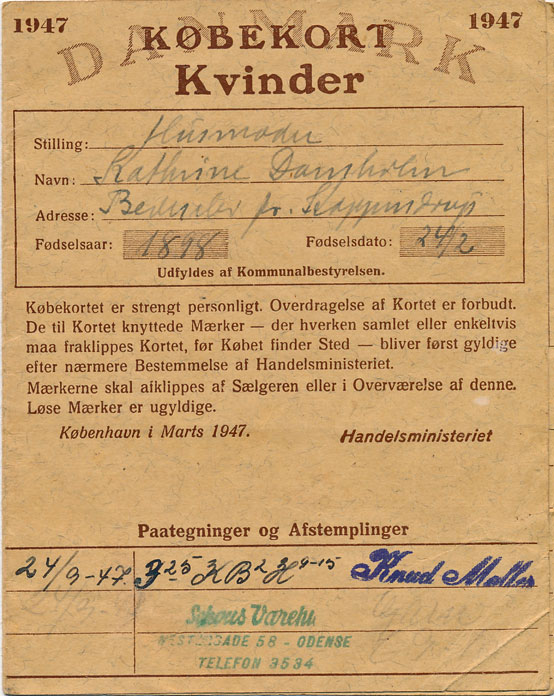 1947 DANMARK 1947
KØBEKORT
Kvinder
Stilling: Husmoder
Navn: Kathrine Damsholm
Adresse: pr. Skappendrup
Fødselsaar: 1898 Fødselsdato: 24/2
Udfyldes af Kommunalbestyrelsen.
Købekortet er strengt personligt. Overdragelse af Kortet er forbudt.
De til Kortet knyttede Mærker — der hverken samlet eller enkeltvis
maa fraklippes Kortet, før Købet finder Sted — bliver først gyldige
efter nærmere Bestemmelse af Handelsministeriet.
Mærkerne skal afklippes af Sælgeren eller i Overværelse af denne.
Løse Mærker er ugyldige.
København i Marts 1947.
Handelsministeriet
Paategninger og Afstemplinger
24/9-47. B² 9-15 Knud Møller
Schous Varehu
VESTERGADE 58 - ODENSE
TELEFON 3534